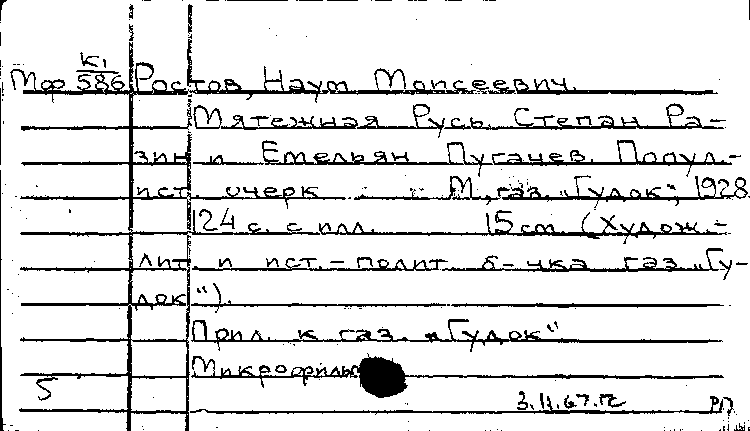 К1
Мф 586 Ростов, Наум Моисеевич.
Мятежная Русь. Степан Ра-
зин и Емельян Пугачев. Попул.-
ист. очерк М., газ. „Гудок", 1928
124 с. с илл. 15 см (Худож.-
лит. и ист.-полит. б-чка газ. „Гу-
док").
Прил. к газ. „Гудок"
Микрофильм
5
3.11.67.
РП